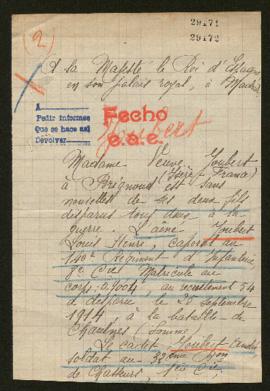 29171
29172
2
A la Majesté le Roi d'Espagne
en son palais royal, à Madrid
A
Pedir informes
Que se hace así
Devolver
Fecho
e.e.e.
Joubert
Madame Veuve Joubert
à (Isère France)
est sans
nouvelles de ses deux fils
disparus tous deux à la
guerre L'ainé Joubert
Louis Henri, caporal au
140e Régiment d'Infanterie
9e Cie Matricule au
corps: au recrutement 54
a disparu le 25 septembre
1914 à la bataille de
Chaulnes (Somme).
Le cadet Joubert
soldat au 32eme Bon
de Chasseurs, 1ère Cie,